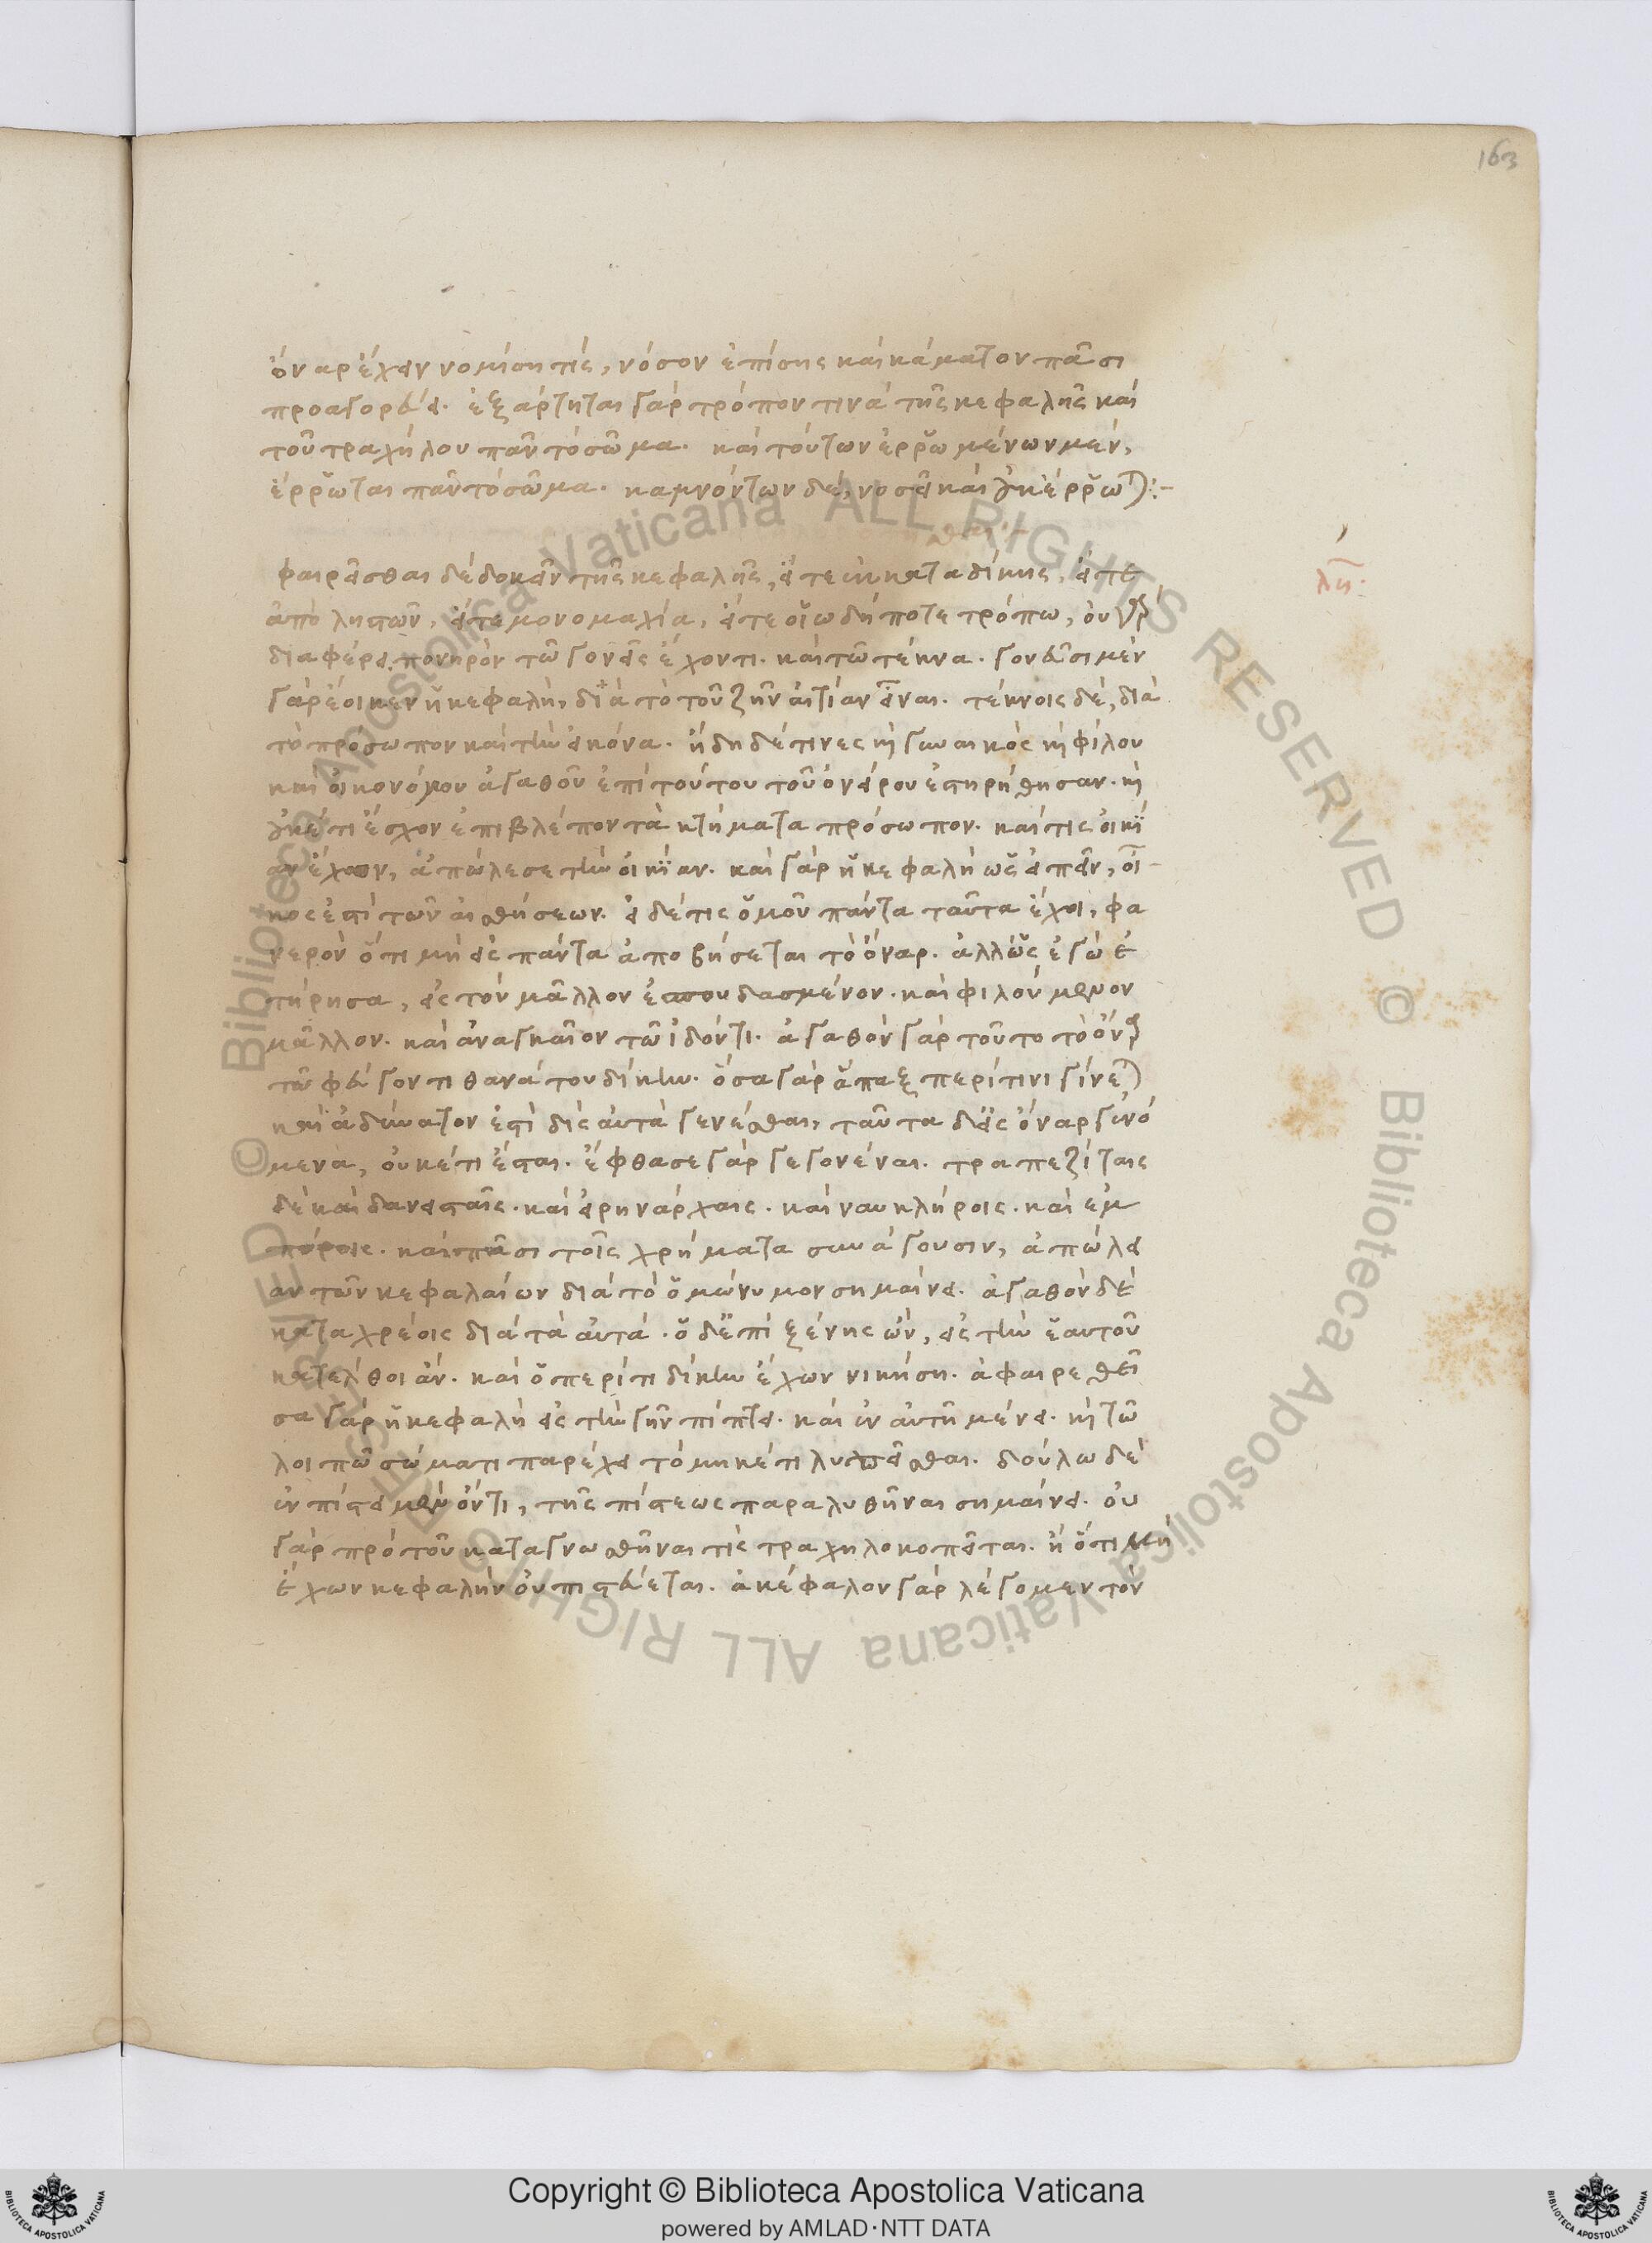 163
όναρ ἔχειν νομίση τίς, νόσον ἐπίσης καὶ κάματον πᾶσι
προαγορεύει. ἐξάρτηται γὰρ τρόπον τινὰ τῆς κεφαλῆς καὶ
τοῦ τραχήλου πᾶν τὸ σῶμα. καὶ τούτων ἐρρωμένων μέν,
ἔρρωται πᾶν τὸ σῶμα. καμνόντων δέ, νοσεῖ καὶ οὐκ ἔρρωται:-
λη:
φαιρεῖσθαι δὲ δοκεῖν τῆς κεφαλῆς, εἴτε ἐκ καταδίκης, εἴτε
ἀπὸ ληστῶν, εἴτε μονομαχία, εἴτε οἵω δήποτε τρόπω, οὐ γὰρ
διαφέρει, πονηρὸν τῶ γονεῖς ἔχοντι. καὶ τῶ τέκνα. γονεῦσι μὲν
γὰρ ἔοικεν ἡ κεφαλή, διὰ τὸ τοῦ ζῆν αἰτίαν εἶναι. τέκνοις δέ, διὰ
τὸ πρόσωπον καὶ τὴν εἰκόνα. ἤδη δέ τινες καὶ γυναικὸς καὶ φίλου
καὶ οἰκονόμου ἀγαθοῦ ἐπὶ τούτου τοῦ ὀνείρου ἐστηρήθησαν. καὶ
οὐκέτι ἔσχον ἐπιβλέπον τὰ κτήματα πρόσωπον. καί τις οἰκί
αν ἔχων, ἀπώλεσε τὴν οἰκίαν. καὶ γὰρ ἡ κεφαλὴ ὡς εἰπεῖν, οἶ-
κος ἐστὶ τῶν αἰσθήσεων. εἰ δέ τις ὁμοῦ πάντα ταῦτα ἔχοι, φα
νερὸν ὅτι μὴ εἰς πάντα ἀποβήσεται τὸ ὄναρ. ἀλλ' ὡς ἐγὼ ἐ
τήρησα, εἰς τὸν μᾶλλον ἐσπουδασμένον. καὶ φιλούμενον
μᾶλλον. καὶ ἀναγκαῖον τῶ ἰδόντι. ἀγαθὸν γὰρ τοῦτο τὸ ὄναρ
τῶ φεύγοντι θανάτου δίκην. ὅσα γὰρ ἅπαξ περί τινι γίνεται
καὶ ἀδύνατον ἐστὶ δὶς αὐτὰ γενέσθαι, ταῦτα δι' εἰς ὄναρ γινό
μενα, οὐκέτι ἔσται. ἔφθασε γὰρ γεγονέναι. τραπεζίταις
δὲ καὶ δανεισταῖς. καὶ εἰρηνάρχαις. καὶ ναυκλήροις. καὶ ἐμ
πόροις. καὶ πᾶσι τοῖς χρήματα συνάγουσιν, ἀπώλει
αν τῶν κεφαλαίων διὰ τὸ ὁμώνυμον σημαίνει. ἀγαθὸν δὲ
καταχρέοις διὰ τὰ αὐτά. ὁ δ' ἐπὶ ξένης ὤν, εἰς τὴν ἑαυτοῦ
κατέλθοι ἄν. καὶ ὁ περί τι δίκην ἔχων νικήση. ἀφαιρεθεῖ
σα γὰρ ἡ κεφαλὴ εἰς τὴν γῆν πίπτει. καὶ ἐν αὐτῆ μένει. καὶ τῶ
λοιπῶ σώματι παρέχει τὸ μηκέτι λυπεῖσθαι. δούλω δὲ
ἐν πίστει μὲν ὄντι, τῆς πίστεως παραλυθῆναι σημαίνει. οὐ
γὰρ πρὸ τοῦ καταγνωσθῆναι τις τραχηλοκοπεῖται. ἢ ὅτι μὴ
ἔχων κεφαλὴν οὐ πιστεύεται. ἀκέφαλον γὰρ λέγομεν τὸν
© Biblioteca Apostolica Vaticana ALL RIGHTS RESERVED © Biblioteca Apostolica Vaticana ALL RIGHTS RESERVED
Copyright © Biblioteca Apostolica Vaticana
powered by AMLAD·NTT DATA
BIBLIOTECA APOSTOLICA VATICANA
BIBLIOTECA APOSTOLICA VATICANA